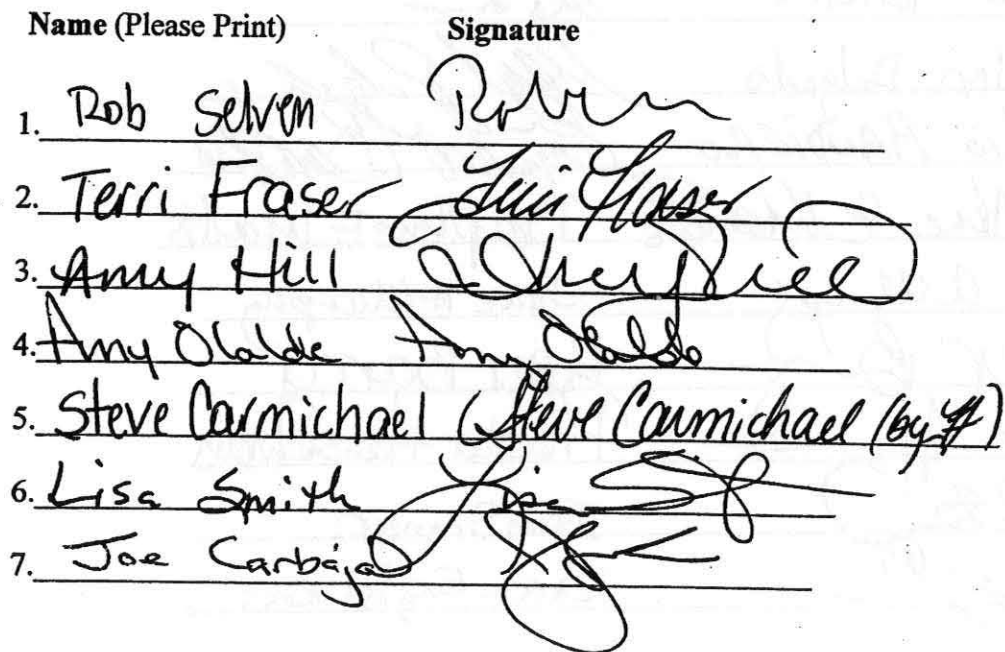 Name (Please Print) Signature
1. Rob Selven Rob
2. Terri Fraser Terri Fraser
3. Amy Hill Amy Hill
4. Amy Olalde Amy Olalde
5. Steve Carmichael Steve Carmichael (by
6. Lisa Smith Lisa
7. Joe Carbajal